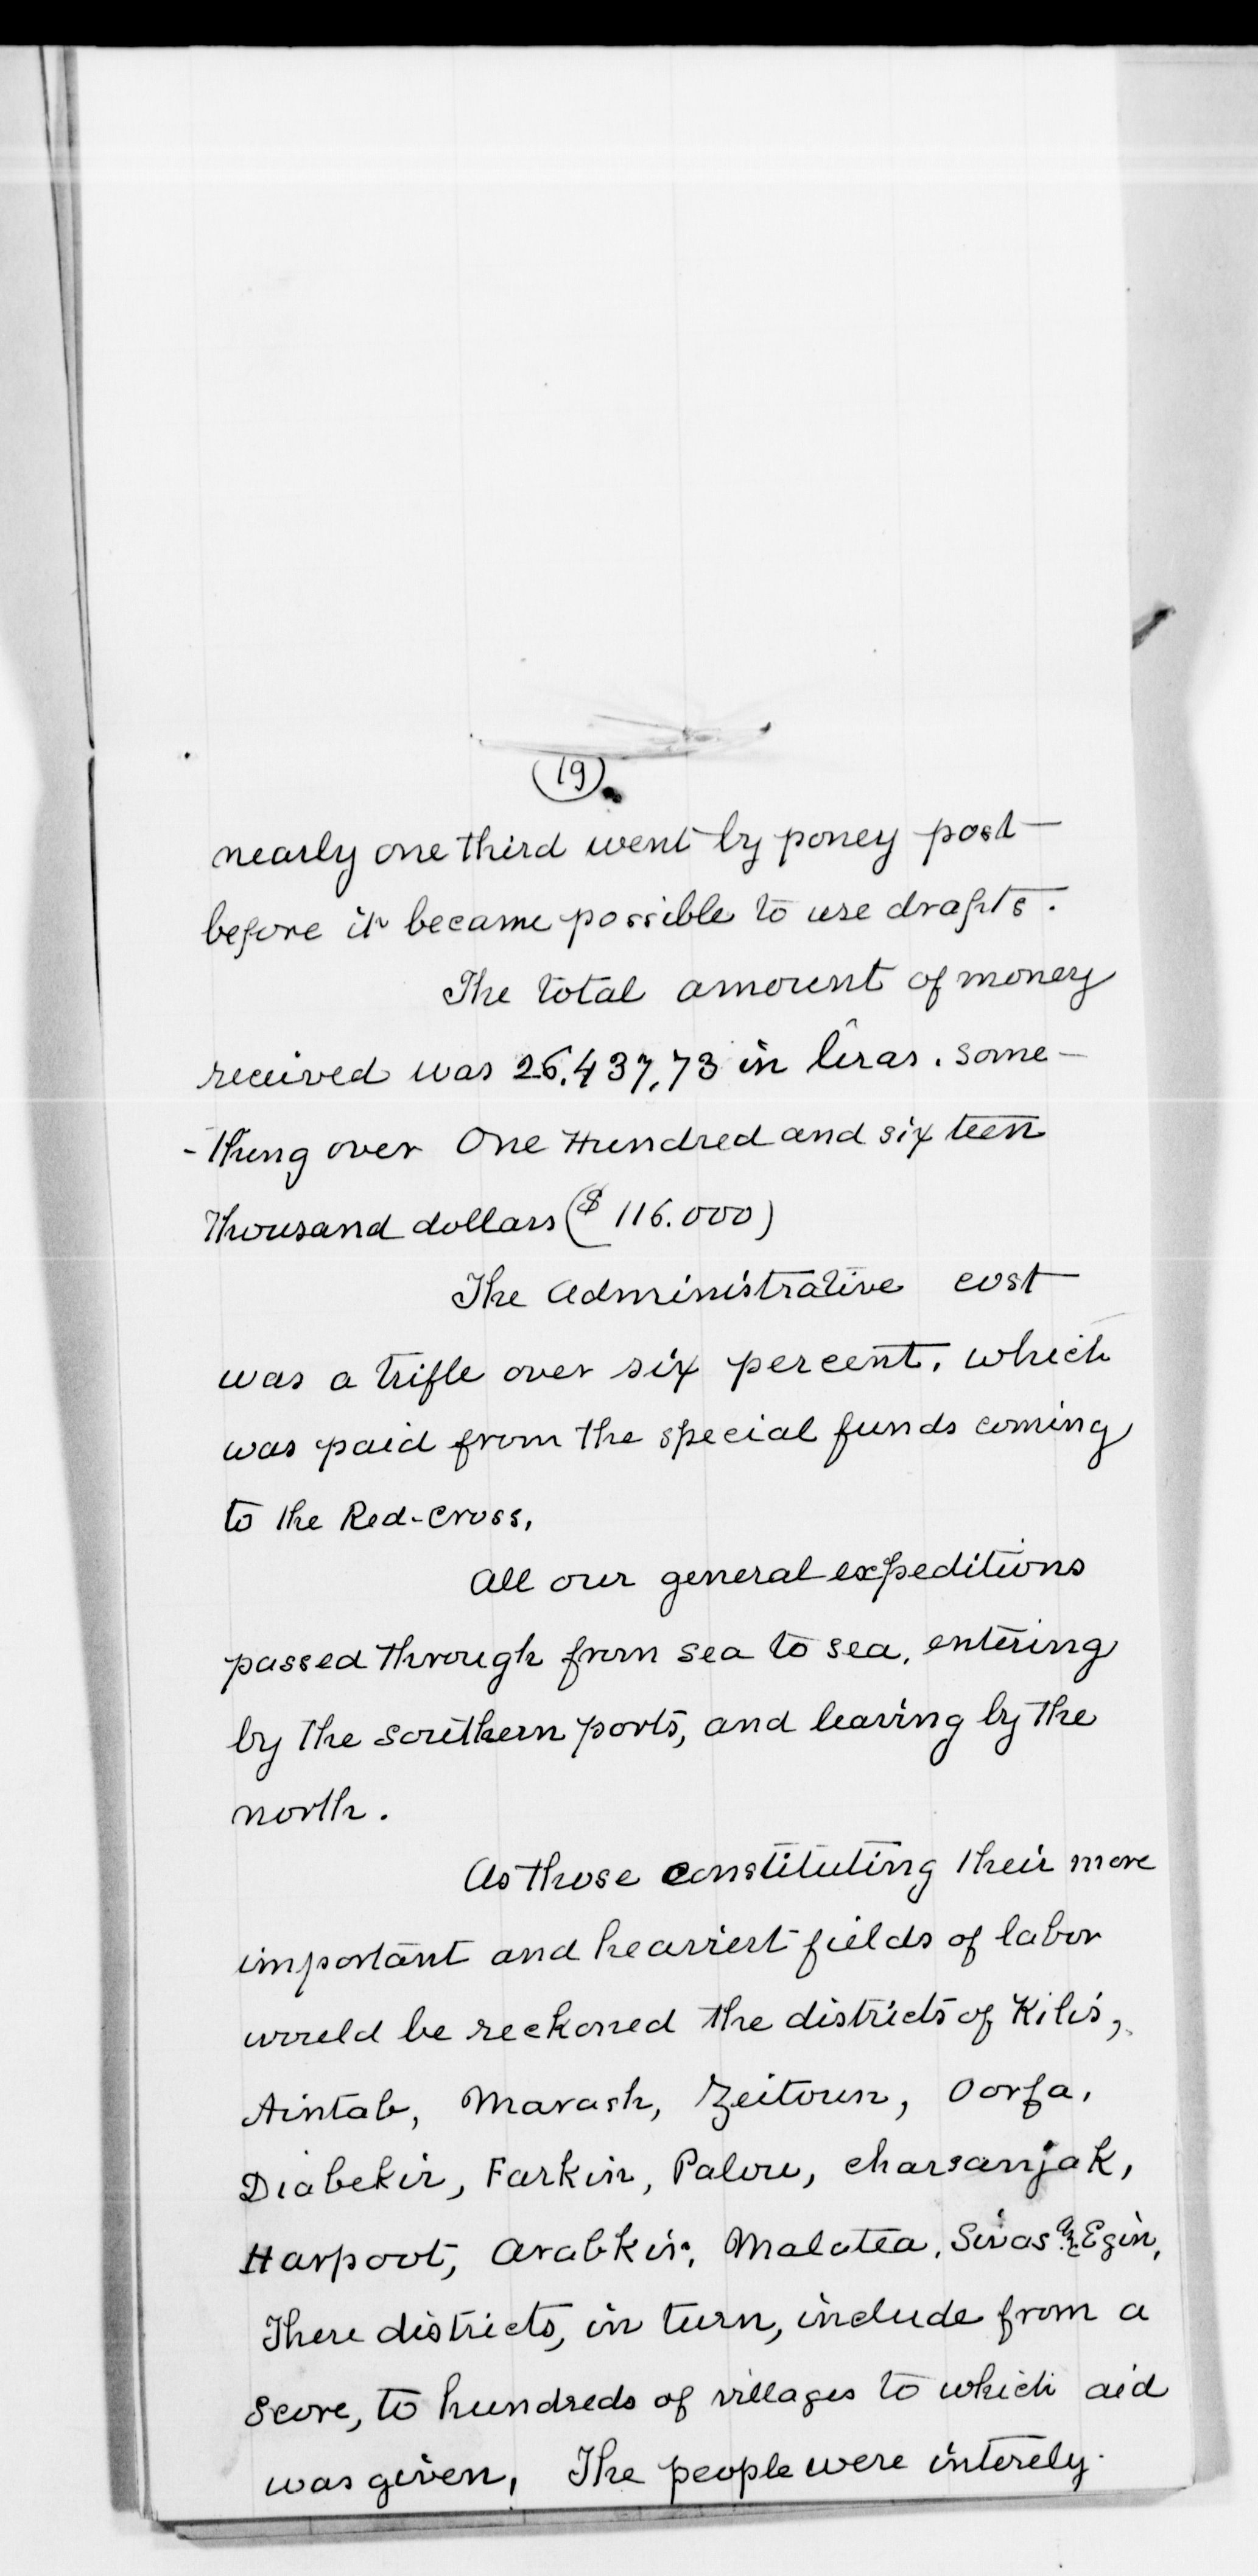 (19)
nearly one third went by poney post
before it became possible to use drafts.
The total amount of money
received was 26.437.73 in liras. some-
-thing over One Hundred and sixteen
thousand dollars ($ 116.000)
The Administrative cost
was a trifle over six percent, which
was paid from the special funds coming
to the Red-Cross,
All our general expeditions
passed through from sea to sea, entering
by the southern ports, and leaving by the
north.
As those constituting their more
important and heaviest fields of labor
would be reckoned the districts of Kilis,
Aintab, Marash, Zeitoun, Oorfa,
Diabekir, Farkin, Palou, Charsanjak,
Harpoot, Arabkir, Malatea, Sivas & Egin,
These districts, in turn, include from a
score, to hundreds of villages to which aid
was given, The people were interely